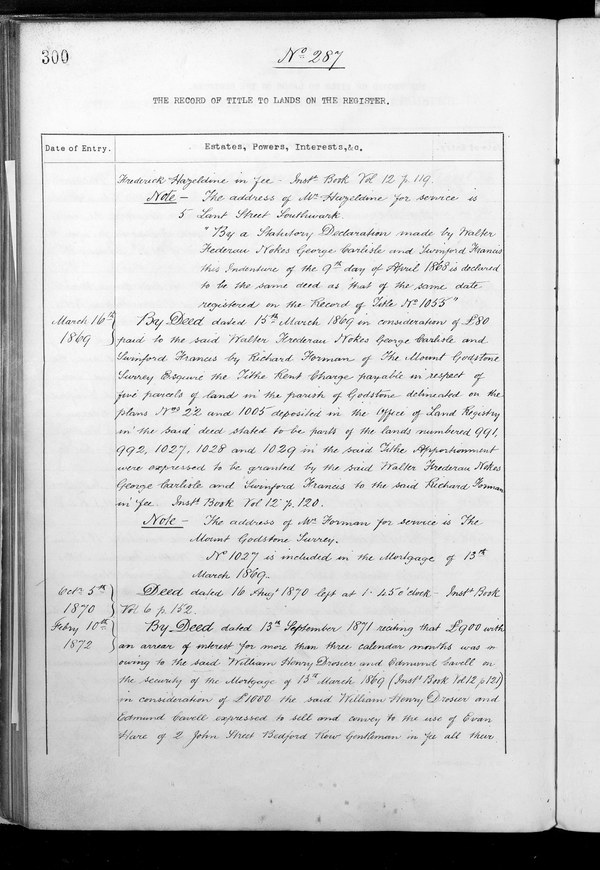 300
No 287
THE RECORD OF TITLE TO LANDS ON THE REGISTER.
Date of Entry.
Estates, Powers, Interests,&c.
Frederick Hazeldine in fee - Inst. Book Vol 12 p. 119.
Note - The address of Mr Hazeldine for service is
5 Lant Street Southwark.
"By a Statutory Declaration made by Walter
Frederau Nokes George Carlisle and Swinford Francis
this Indenture of the 9th day of April 1868 is declared
to be the same deed as that of the same date
registered on the Record of Title No 1055"
March 16th
1869
By Deed dated 15th March 1869 in consideration of £80
paid to the said Walter Frederau Nokes George Carlisle and
Swinford Francis by Richard Forman of The Mount Godstone
Surrey Esquire the Tithe Rent Charge payable in respect of
five parcels of land in the parish of Godstone delineated on the
plans Nos 22 and 1005 deposited in the Office of Land Registry
in the said deed stated to be parts of the lands numbered 991,
992, 1027, 1028 and 1029 in the said Tithe Apportionment
were expressed to be granted by the said Walter Frederau Nokes
George Carlisle and Swinford Francis to the said Richard Forman
in fee. Inst. Book Vol 12 p. 120.
Note - The address of Mr Forman for service is The
Mount Godstone Surrey.
No 1027 is included in the Mortgage of 13th
March 1869.
Octr 5th
1870
Deed dated 16 Augt 1870 left at 1.45 o'clock - Inst. Book
Vol. 6 p. 152.
Febry 10th
1872
By Deed dated 13th September 1871 reciting that £900 with
an arrear of interest for more than three calendar months was
owing to the said William Henry Drosier and Edmund Cavell on
the security of the Mortgage of 13th March 1869 (Inst. Book Vol 12 p 121)
in consideration of £1000 the said William Henry Drosier and
Edmund Cavell expressed to sell and convey to the use of Evan
Hare of 2 John Street Bedford Row Gentleman in fee all their